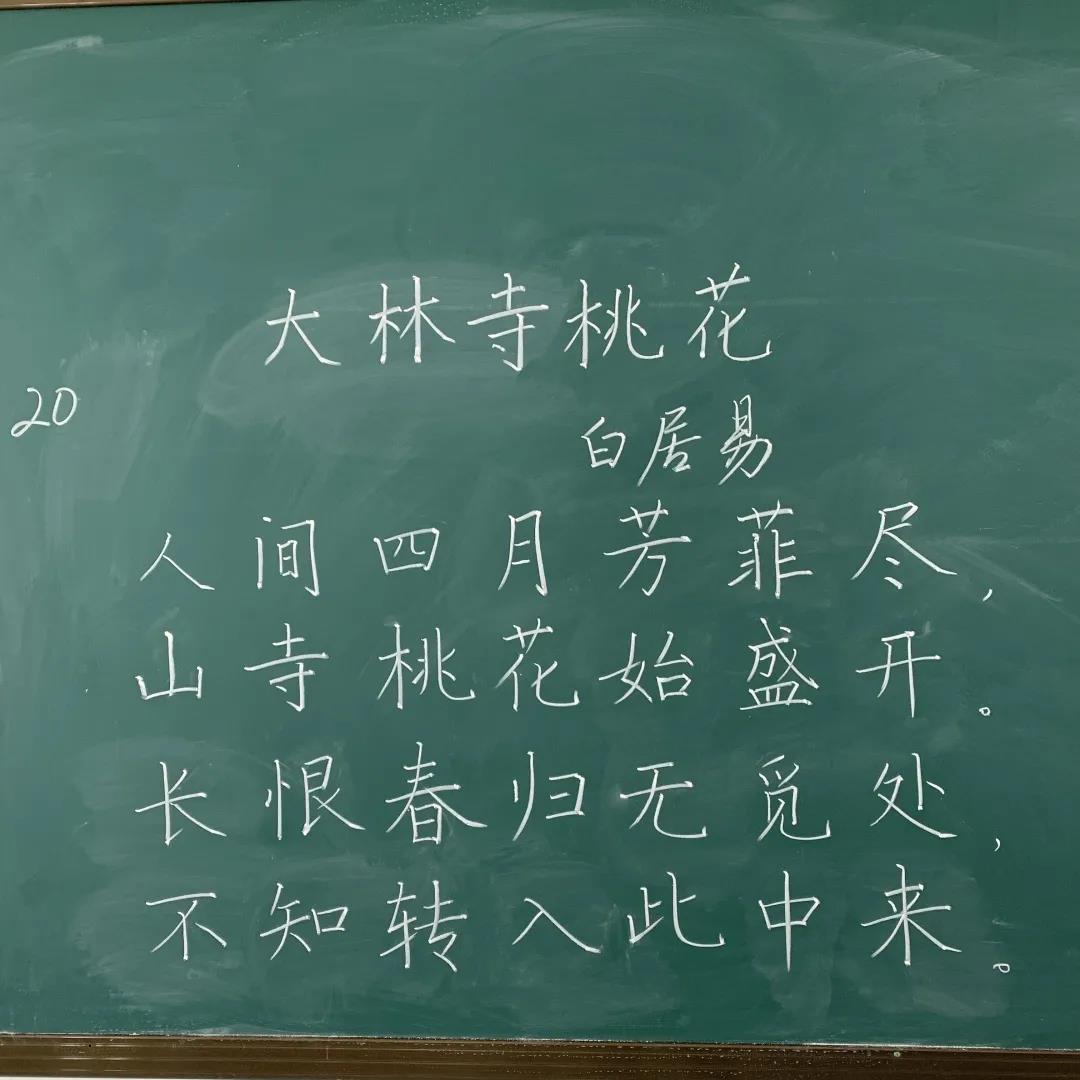 大林寺桃花
20
白居易
人间四月芳菲尽，
山寺桃花始盛开。
长恨春归无觅处，
不知转入此中来。